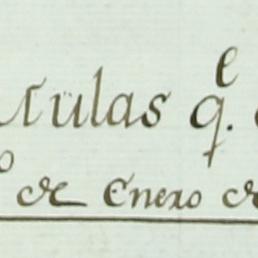 Mulas q.e
de Enero de